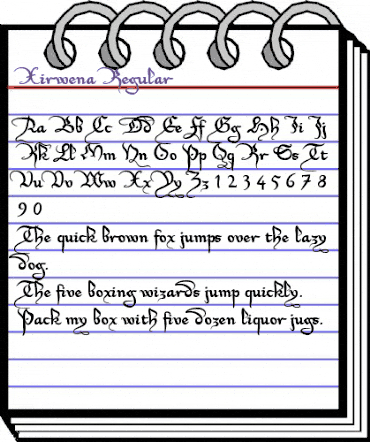 Xirwena Regular
Aa Bb Cc Dd Ee Ff Gg Hh Ii Jj
Kk Ll Mm Nn Oo Pp Qq Rr Ss Tt
Uu Vv Ww Xx Yy Zz 1 2 3 4 5 6 7 8
9 0
The quick brown fox jumps over the lazy
dog.
The five boxing wizards jump quickly.
Pack my box with five dozen liquor jugs.